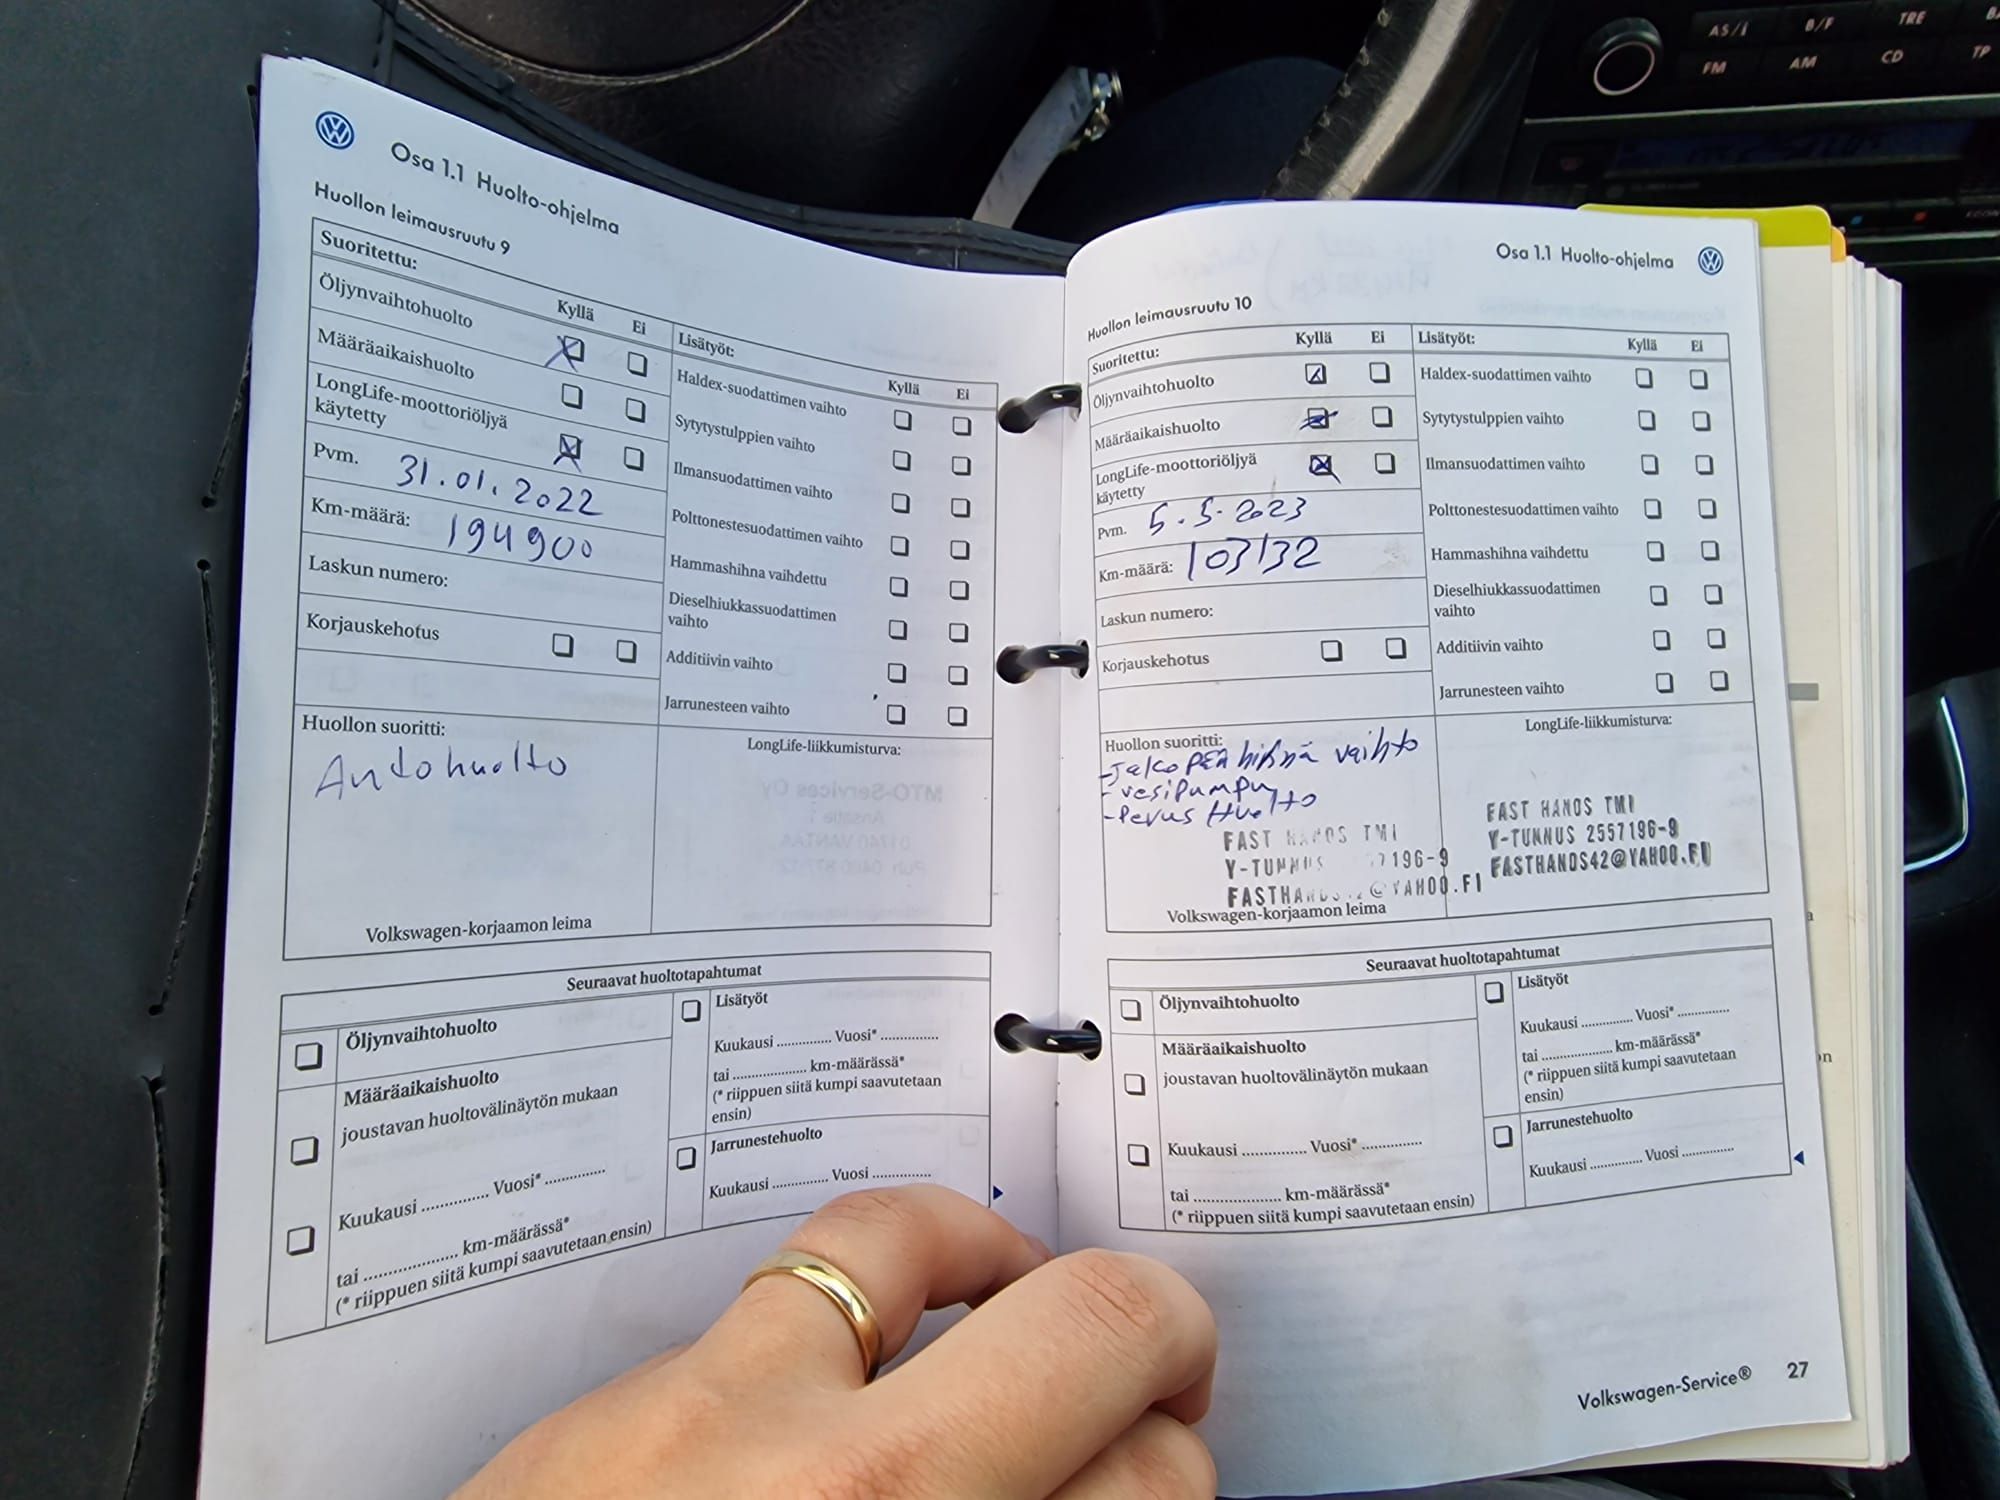 Osa 1.1 Huolto-ohjelma
Huollon leimausruutu 9
Suoritettu:
Kyllä Ei
Öljynvaihtohuolto
Määräaikaishuolto
LongLife-moottoriöljyä
käytetty
Pvm. 31.01.2022
Km-määrä: 194900
Laskun numero:
Korjauskehotus
Huollon suoritti:
Autohuolto
Volkswagen-korjaamon leima
Lisätyöt:
Kyllä Ei
Haldex-suodattimen vaihto
Sytytystulppien vaihto
Ilmansuodattimen vaihto
Polttonestesuodattimen vaihto
Hammashihna vaihdettu
Dieselhiukkassuodattimen
vaihto
Additiivin vaihto
Jarrunesteen vaihto
LongLife-liikkumisturva:
Seuraavat huoltotapahtumat
Öljynvaihtohuolto
Määräaikaishuolto
joustavan huoltovälinäytön mukaan
Kuukausi ............. Vuosi* ............
tai .................... km-määrässä*
(* riippuen siitä kumpi saavutetaan ensin)
Lisätyöt
Kuukausi ............. Vuosi* .............
tai .................... km-määrässä*
(* riippuen siitä kumpi saavutetaan
ensin)
Jarrunestehuolto
Kuukausi ............. Vuosi .............
Osa 1.1 Huolto-ohjelma
Huollon leimausruutu 10
Suoritettu:
Kyllä Ei
Öljynvaihtohuolto
Määräaikaishuolto
LongLife-moottoriöljyä
käytetty
Pvm. 5.5.2023
Km-määrä: 103132
Laskun numero:
Korjauskehotus
Huollon suoritti:
-Jakopeä hihnä vaihto
-vesipumpu
-Perus Huolto
FAST HANDS TMI
Y-TUNNUS 7196-9
FASTHANDS42@YAHOO.FI
Volkswagen-korjaamon leima
Lisätyöt:
Kyllä Ei
Haldex-suodattimen vaihto
Sytytystulppien vaihto
Ilmansuodattimen vaihto
Polttonestesuodattimen vaihto
Hammashihna vaihdettu
Dieselhiukkassuodattimen
vaihto
Additiivin vaihto
Jarrunesteen vaihto
LongLife-liikkumisturva:
FAST HANDS TMI
Y-TUNNUS 2557196-9
FASTHANDS42@YAHOO.FI
Seuraavat huoltotapahtumat
Öljynvaihtohuolto
Määräaikaishuolto
joustavan huoltovälinäytön mukaan
Kuukausi ............. Vuosi* ............
tai .................... km-määrässä*
(* riippuen siitä kumpi saavutetaan ensin)
Lisätyöt
Kuukausi ............. Vuosi* .............
tai .................... km-määrässä*
(* riippuen siitä kumpi saavutetaan
ensin)
Jarrunestehuolto
Kuukausi ............. Vuosi .............
Volkswagen-Service® 27
AS/i B/F TRE
FM AM CD TP
ECON